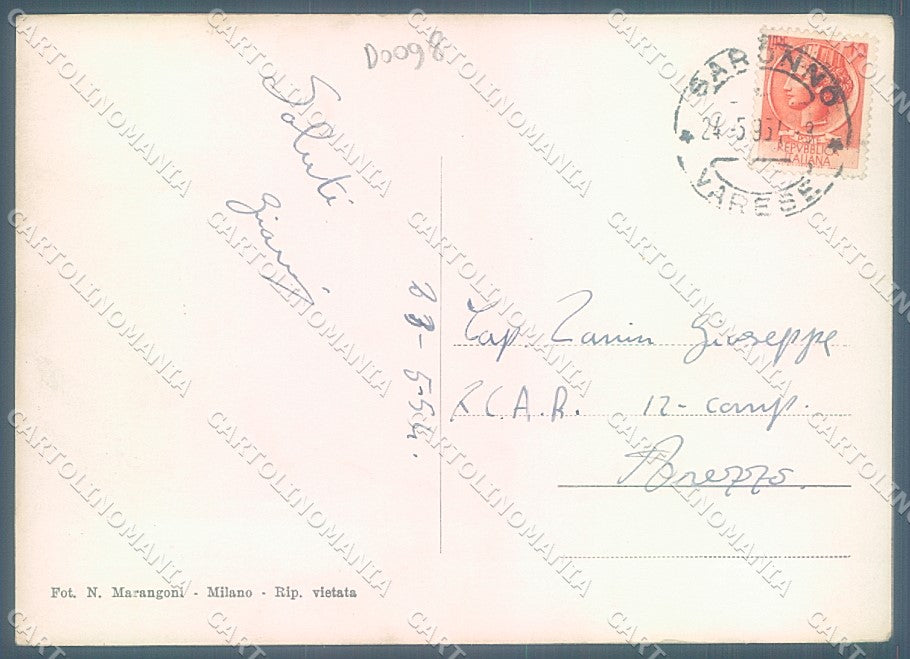 D0098
LIRE
SARONNO
24.5.95
VARESE
REPVBBLICA
ITALIANA
Saluti
Gianni
23-5-54.
Cap. Zanin Giuseppe
C.A.R. 12- comp.
Arezzo.
Fot. N. Marangoni - Milano - Rip. vietata
CARTOLINOMANIA